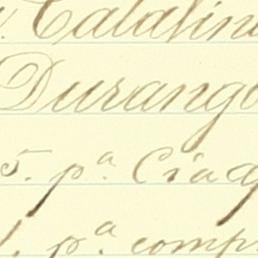 Catalin
Durango
5. p.ª Ciag
1. p.ª comp